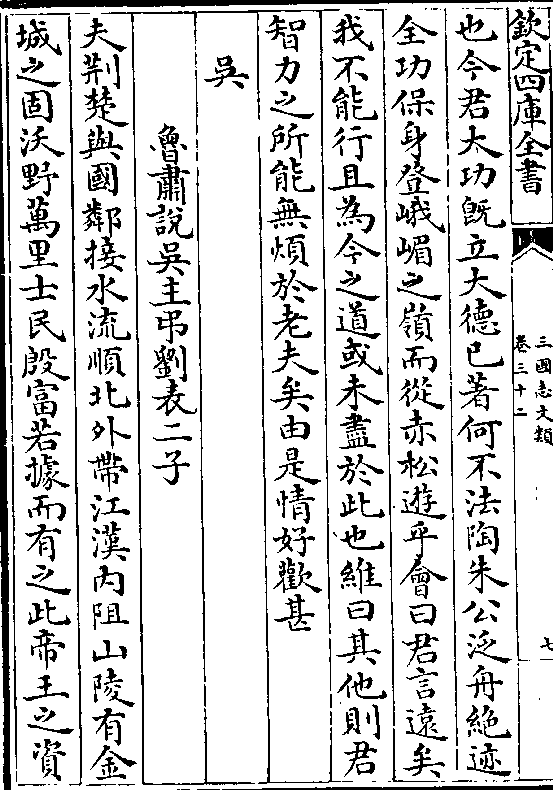 欽定四庫全書
三國志文類
卷三十二
七
也今君大功既立大德已著何不法陶朱公泛舟絶迹
全功保身登峨嵋之嶺而從赤松遊乎會曰君言遠矣
我不能行且為今之道或未盡於此也維曰其他則君
智力之所能無煩於老夫矣由是情好歡甚
吳
魯肅說吳主弔劉表二子
夫荆楚與國鄰接水流順北外帶江漢内阻山陵有金
城之固沃野萬里士民殷富若據而有之此帝王之資